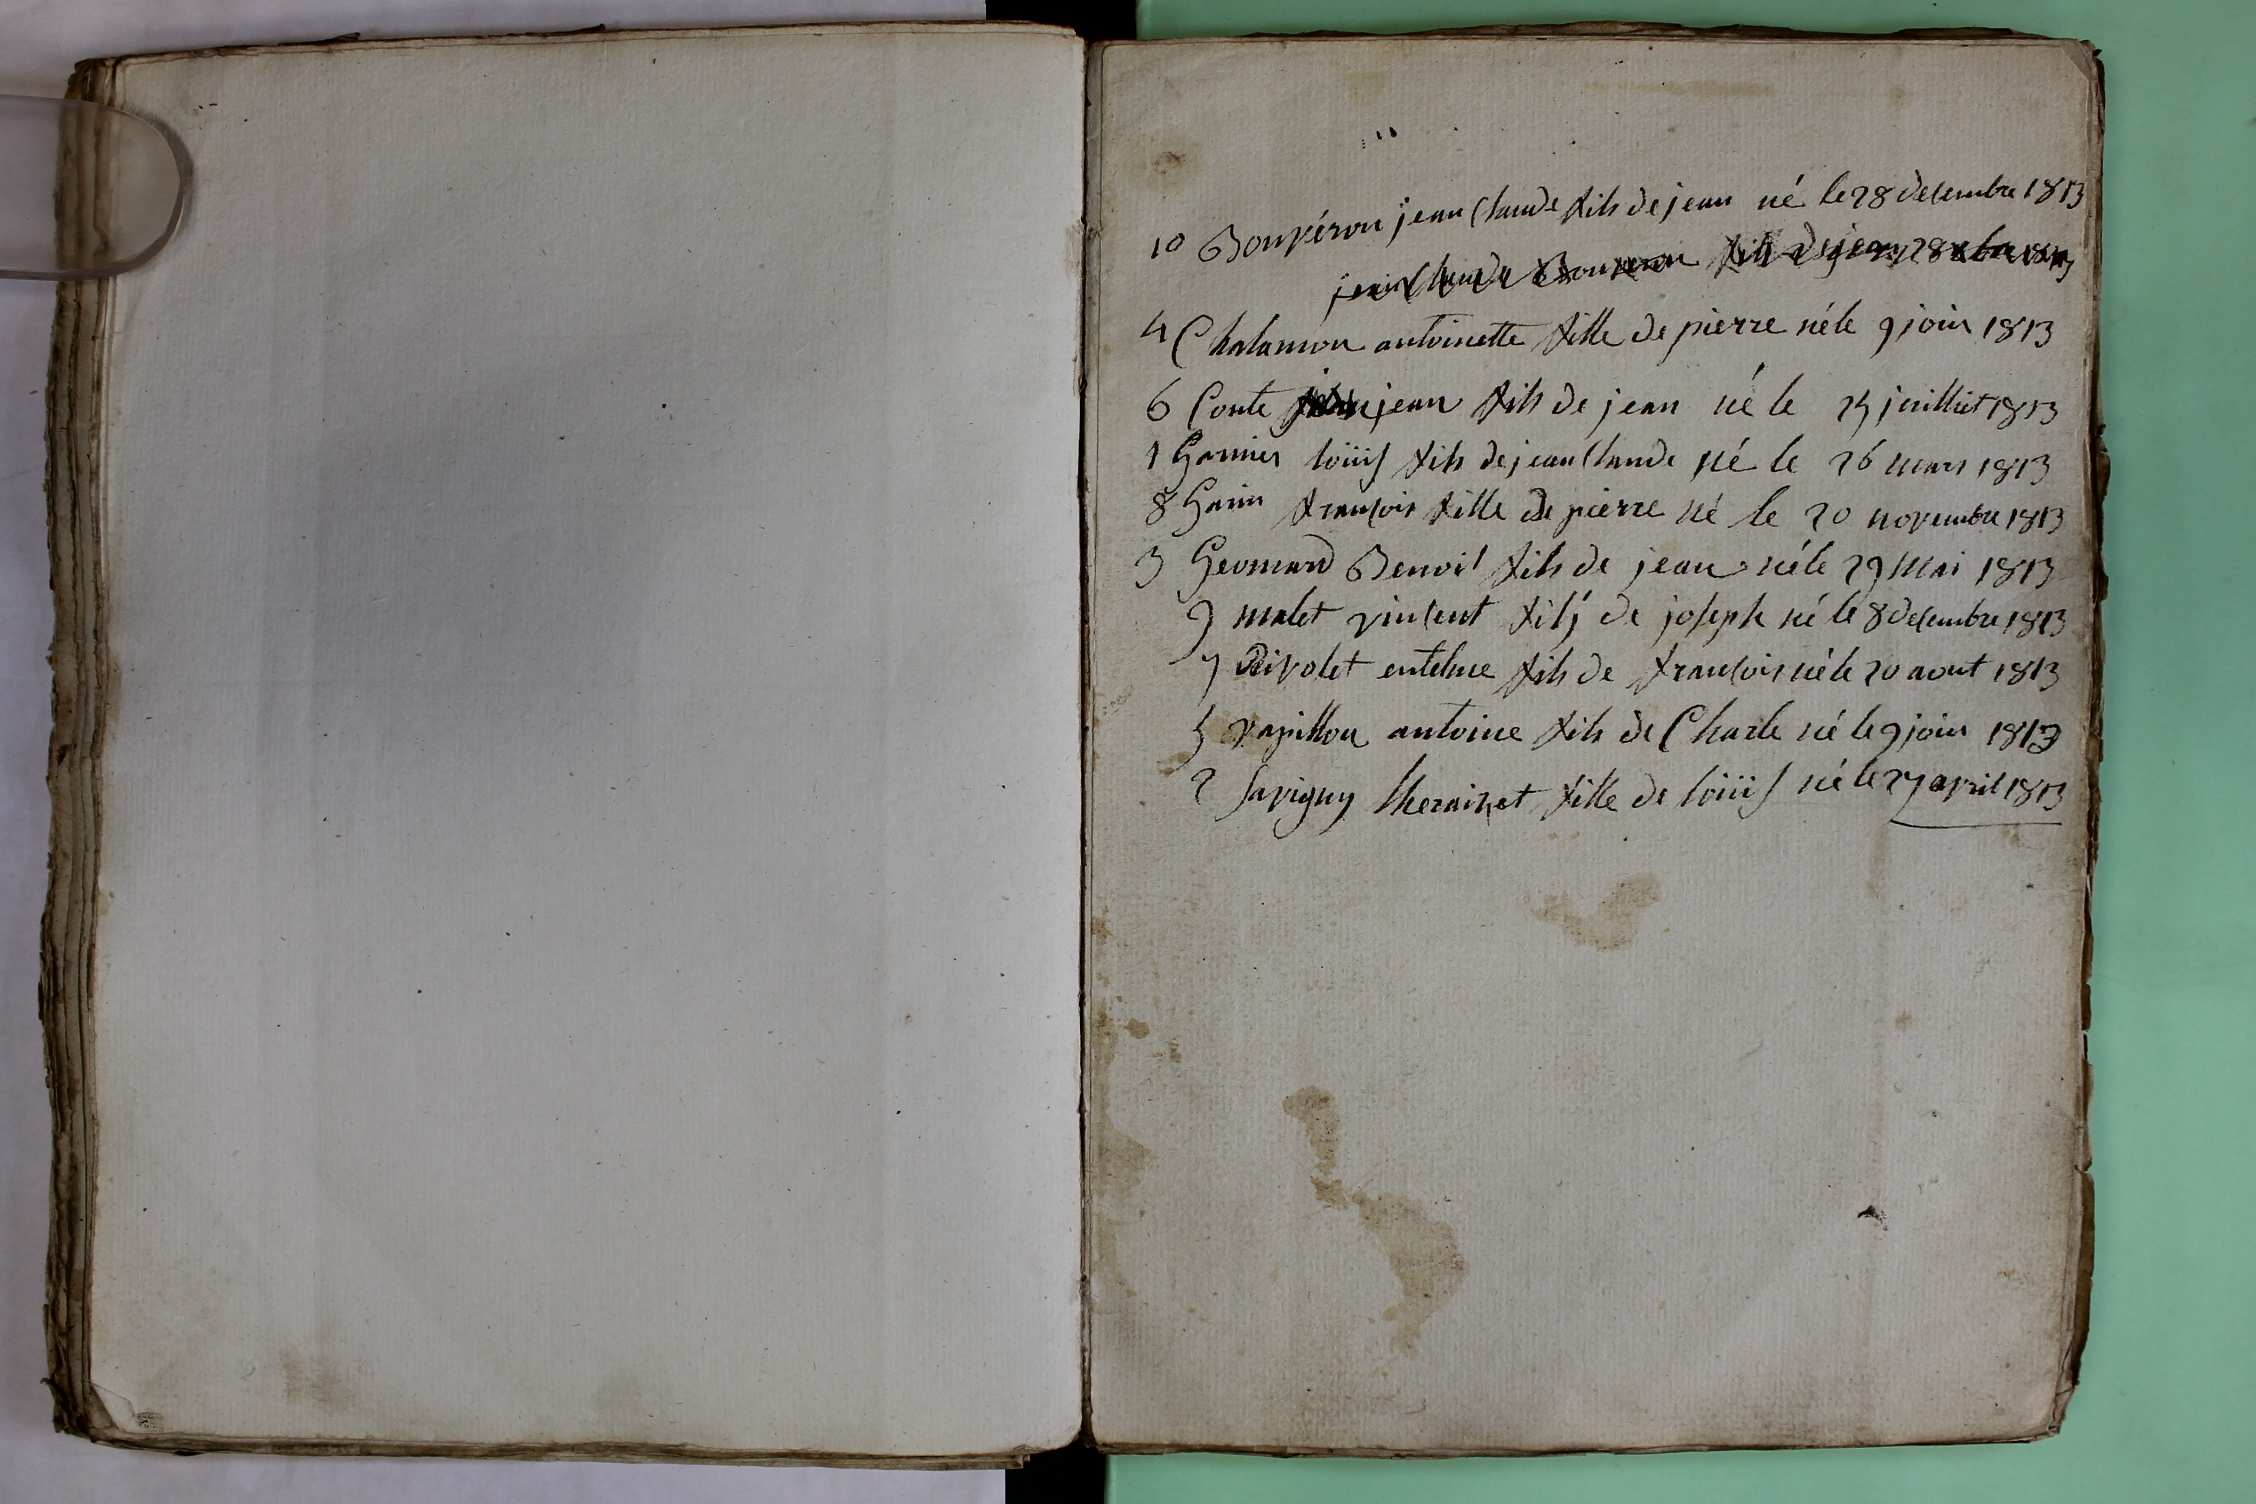 10 Bonpéron jean Claude fils de jean né le 28 decembre 1813
jean Claude Bonperon fils de jean 28 xbre 1813
4 Chalamon antoinette fille de pierre né le 9 join 1813
6 Conte jean fils de jean né le 25 juilliet 1813
1 Garnier loüis fils de jean Claude né le 26 mars 1813
8 Garin francois fille de pierre né le 20 novembre 1813
3 Geomard Benoit fils de jean né le 29 Mai 1813
9 malet vincent fils de joseph né le 8 decembre 1813
7 Rivolet entelme fils de francois né le 20 aout 1813
5 papillon antoine fils de Charle né le 9 join 1813
2 Savigny fille de loüis né le 27 april 1813